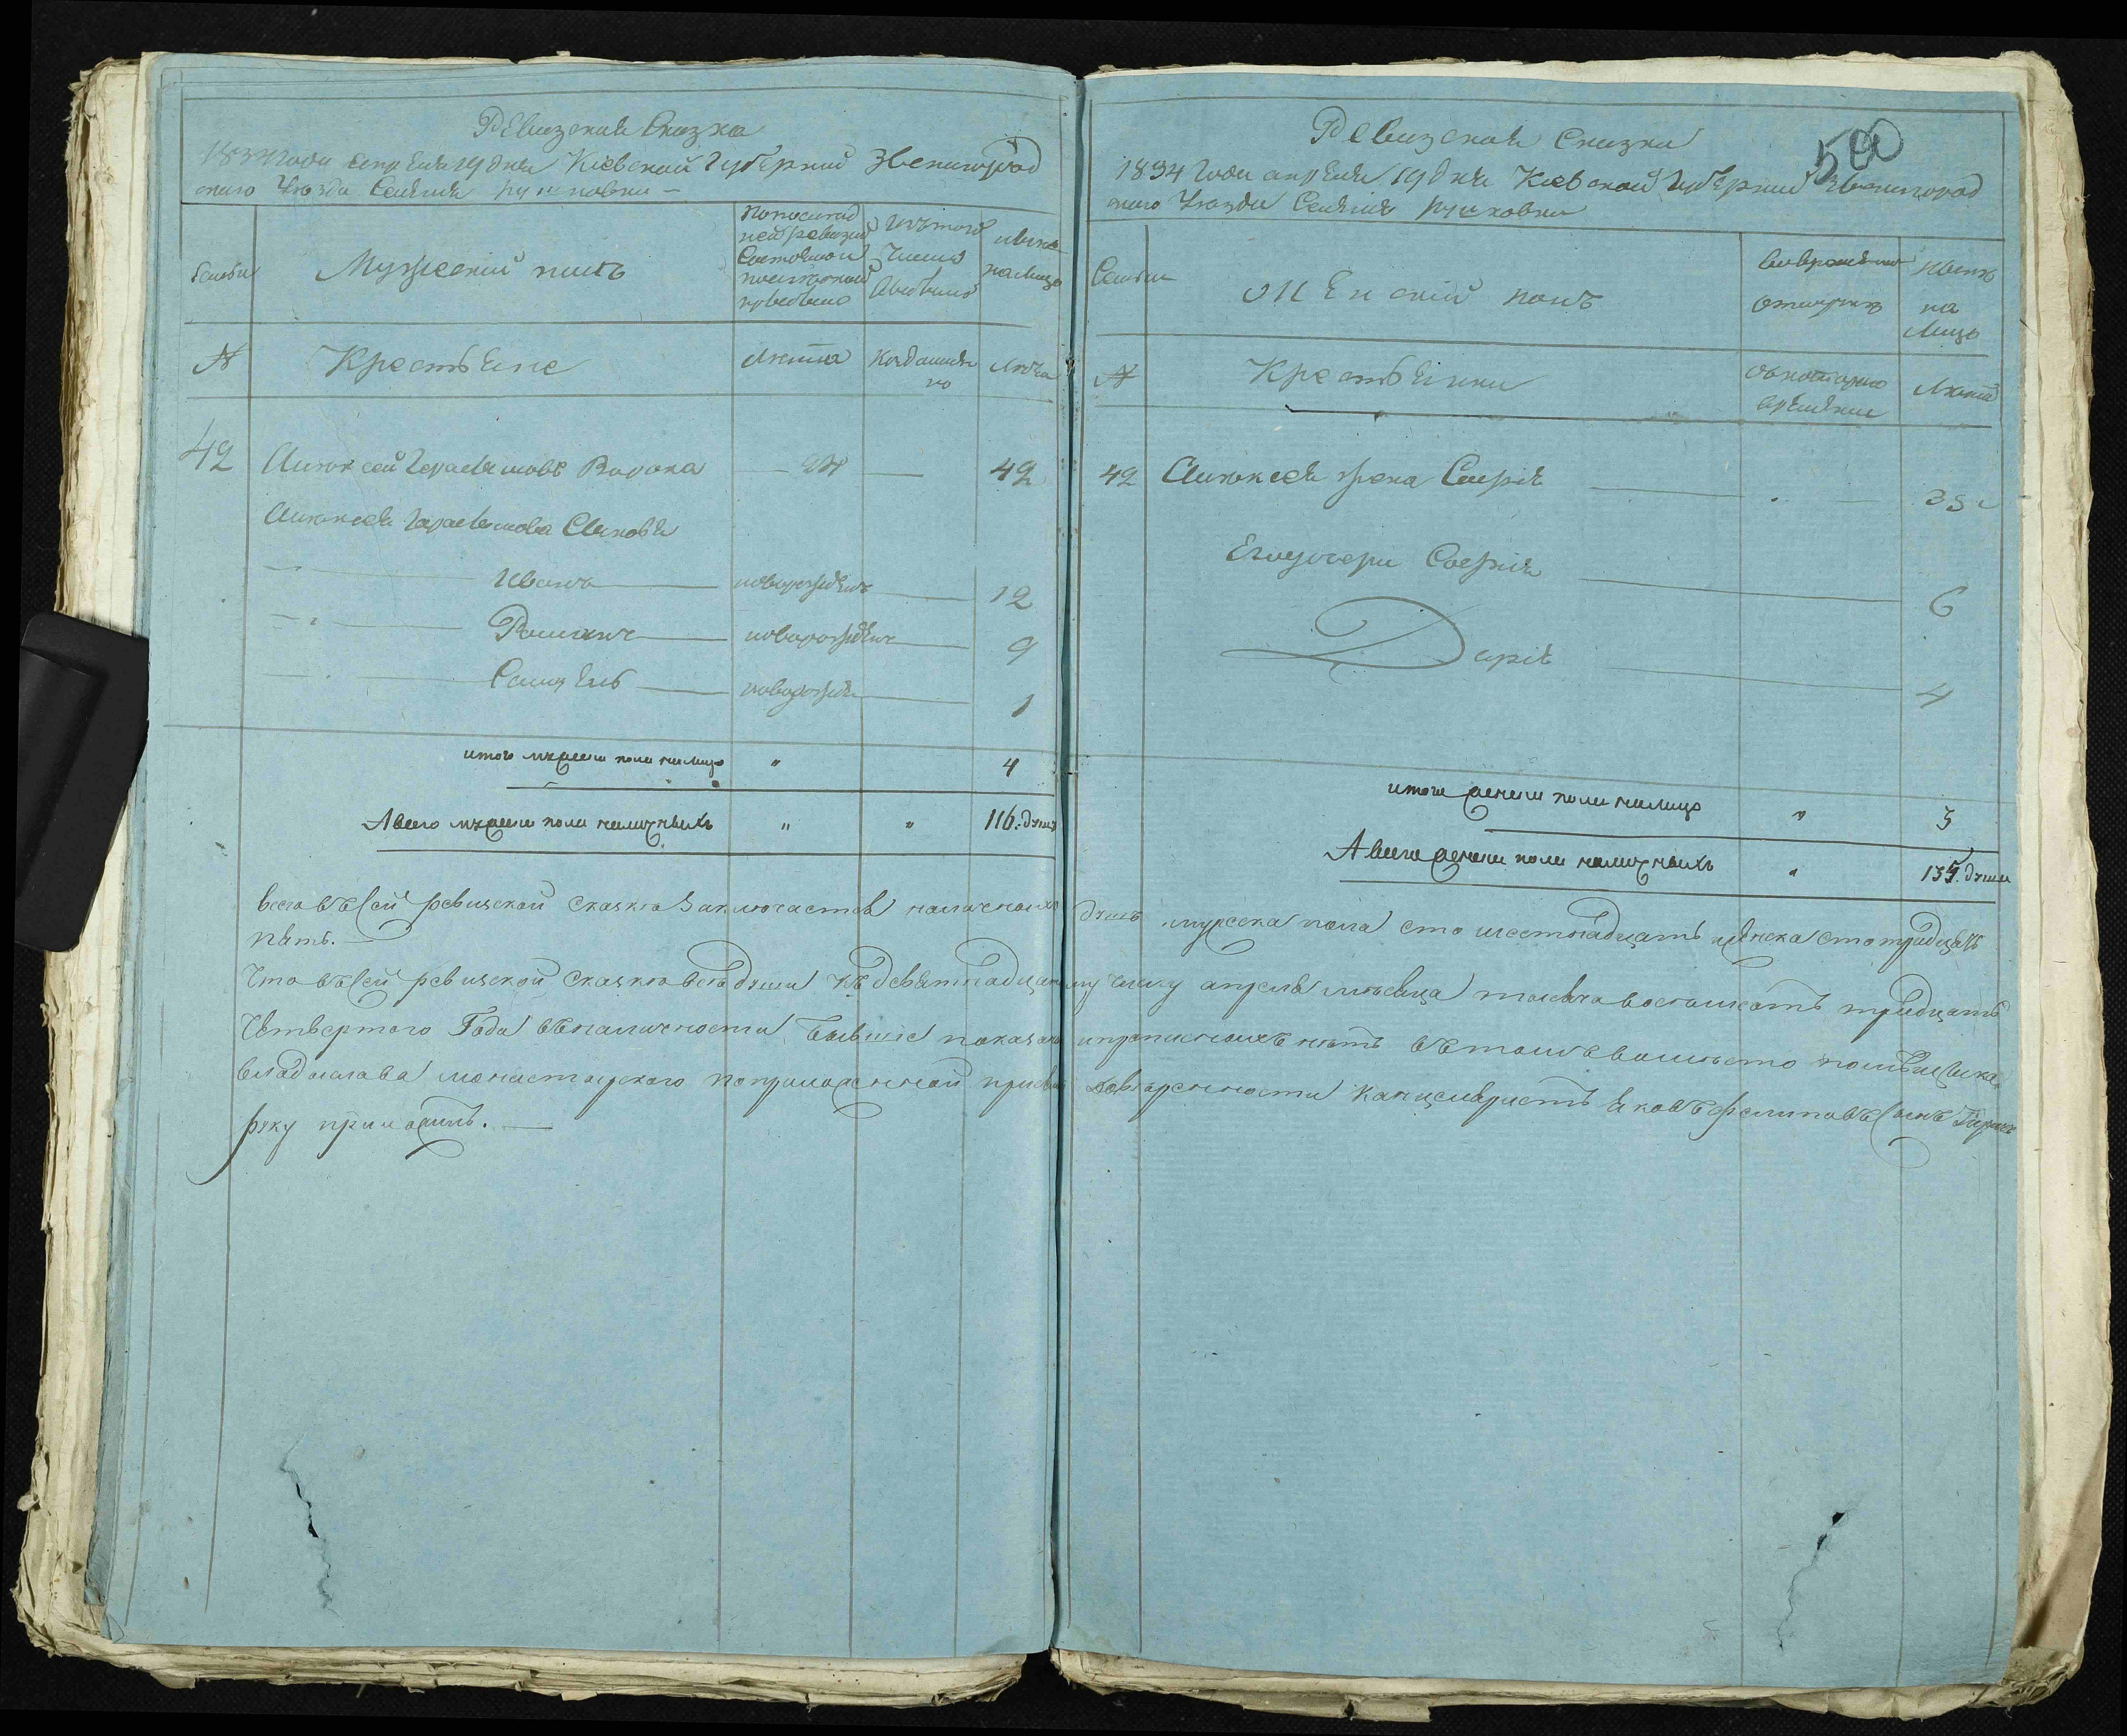 Ревизская Сказка
1834 года апреля 19 дня Киевской Губерний Звенигород
скаго Уезда Селения
Семьи
Мужеский полъ
По последней ревизии Состояло и после оной прибыло
Изъ того Числа Выбыло
Ныне на Лицо
№
Крестьяне
Лета
Когда именно
Лета
42 Алексей Герасимовъ Ворона 42
Алексея Герасимова Сыновья
Иванъ новорожденъ 12
Романъ новорожденъ 9
Самуилъ новорожден 1
итого мужеска пола налицо " 4
А всего мужеска пола наличныхъ " " 116. душъ
500
Ревизская Сказка
1834 года апреля 19 дня Киевской Губернии Звенигород
скаго Уезда Селения
Семьи
Женский полъ
Во временной отлучке
Ныне на Лицо
№
Крестьянки
Съ котораго времени
Лета
42 Алексея жена София 35
Его дочери Софиия 6
Дария 4
итого женска пола налицо " 3
А всего женска пола наличныхъ " 135. души
всего въ сей ревизской сказке Заключается наличныхъ душъ мужеска пола сто шестнадцать женска сто тридцать
пять.
Что въ сей ревизской сказке все души къ девятнадцатому числу апреля месяца тысяча восемьсотъ тридцать
Четвертого Года въ наличности бывшие показаны и прописныхъ нетъ въ томъ вместо помещика
Владислава по приложенной при сем доверенности Канцеляристъ Яковъ Филиповъ сынъ
руку приложилъ.